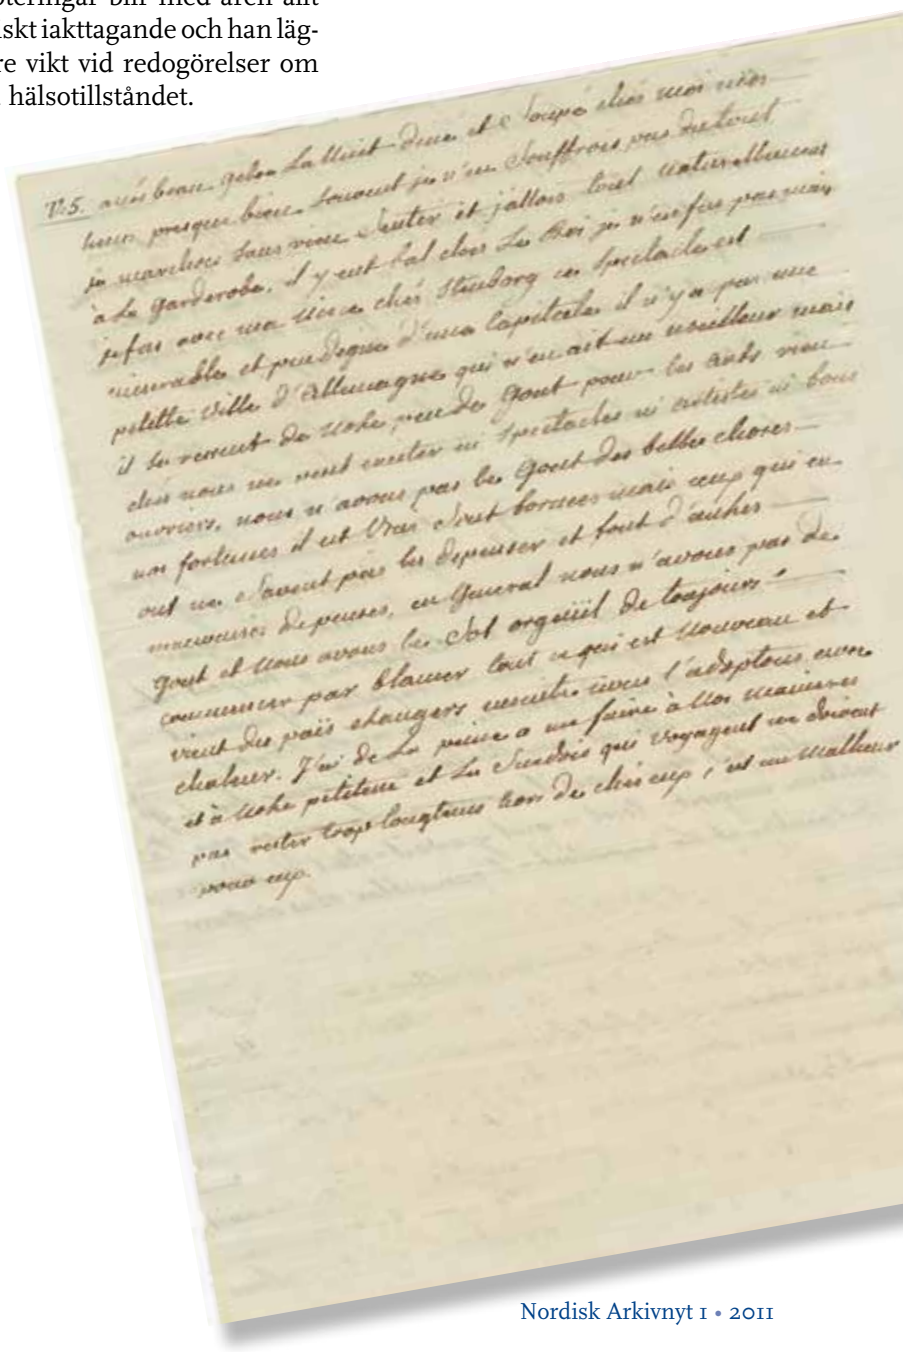 oteringar blir med åren allt
iskt iakttagande och han läg-
re vikt vid redogörelser om
hälsotillståndet.
V.5. beau gelea La Nuit dinai et Soupé chés moi
presque bien souvent je n'en Souffrois pas du tout
je marchois Sans rien Senter et j'allois tout naturellement
à La Garderobe. il y eut bal chés Le Roi je n'en fus pas mais
je fus avec ma Niece chés Stenborg ce Spectacle est
miserable et peu digne d'une Capitale il n'y a pas une
petitte Ville d'Allemagne qui n'en ait un meilleur mais
il se ressent de Notre peu de Gout pour les Arts rien
chés nous ne peut exciter ni Spectacles ni artistes ni bons
ouvriers. nous n'avons pas le Gout des belles choses
nos fortunes il est Vrai Sont bornees mais ceux qui en
ont ne Savent pas les depenser et font d'autres
mauvaises depenses, en General nous n'avons pas de
Gout et Nous avons le Sot orgeuil de toujours
commencer par blamer tout ce qui est Nouveau et
vient des païs etrangers ensuite nous l'adoptons avec
chaleur. J'ai de La peine a me faire à Nos manieres
et à Notre petitesse et Les Suedois qui voyagent ne doivent
pas rester trop longtems hors de chés eux, c'est un malheur
pour eux.
Nordisk Arkivnyt 1 • 2011